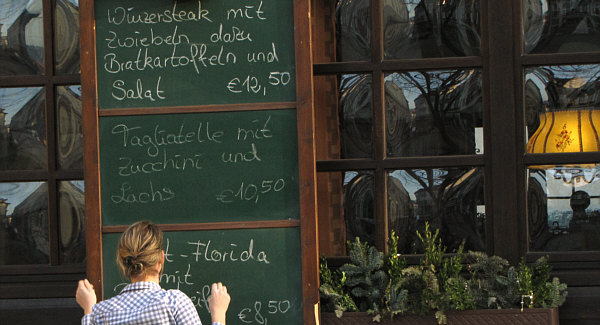 Winzersteak mit
Zwiebeln dazu
Bratkartoffeln und
Salat €12,50
Tagliatelle mit
Zucchini und
Lachs €10,50
t-Florida
mit
€8,50